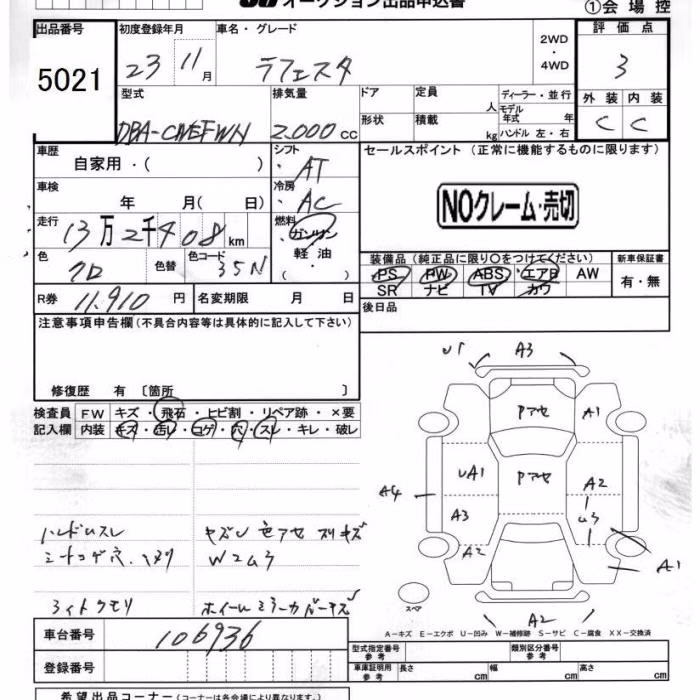 オークション出品申込書
①会場控
出品番号
5021
初度登録年月
23 11月
車名・グレード
ラフェスタ
2WD
・
4WD
評価点
3
外装 内装
C C
型式
DBA-CWEFWN
排気量
2.000cc
ドア
形状
定員 人
積載 kg
ディーラー・並行
モデル年式 年
ハンドル 左・右
車歴
自家用・( )
シフト
AT
車検 年 月( 日)
冷房
AC
走行
13万2千408km
燃料
ガソリン
軽油
( ・ )
色
クロ
色替
色コード
35N
R券 11.910円
名変期限 月 日
セールスポイント (正常に機能するものに限ります)
NOクレーム・売切
装備品 (純正品に限り○をつけてください)
PS PW ABS エアB AW
SR ナビ TV カワ
新車保証書
有・無
後日品
注意事項申告欄 (不具合内容等は具体的に記入して下さい)
修復歴 有 〔箇所 〕
検査員 FW キズ・飛石・ヒビ割・リペア跡・×要
記入欄 内装 キズ・汚レ・コゲ・穴・スレ・キレ・破レ
ハンドルスレ
シートコゲ穴.
ライトクモリ
色アセ スリキズ
W2ムラ
U1 A3
Pアセ A1
UA1 Pアセ A2
A4
A3 ムラ
A2 A1
A2
スペア
A-キズ E-エクボ U-凹み W-補修跡 S-サビ C-腐食 XX-交換済
車台番号 106936
登録番号
型式指定番号 参考
類別区分番号 参考
車庫証明用 参考 長さ cm 幅 cm 高さ cm
希望出品コーナー (コーナーは各会場により異なります。)